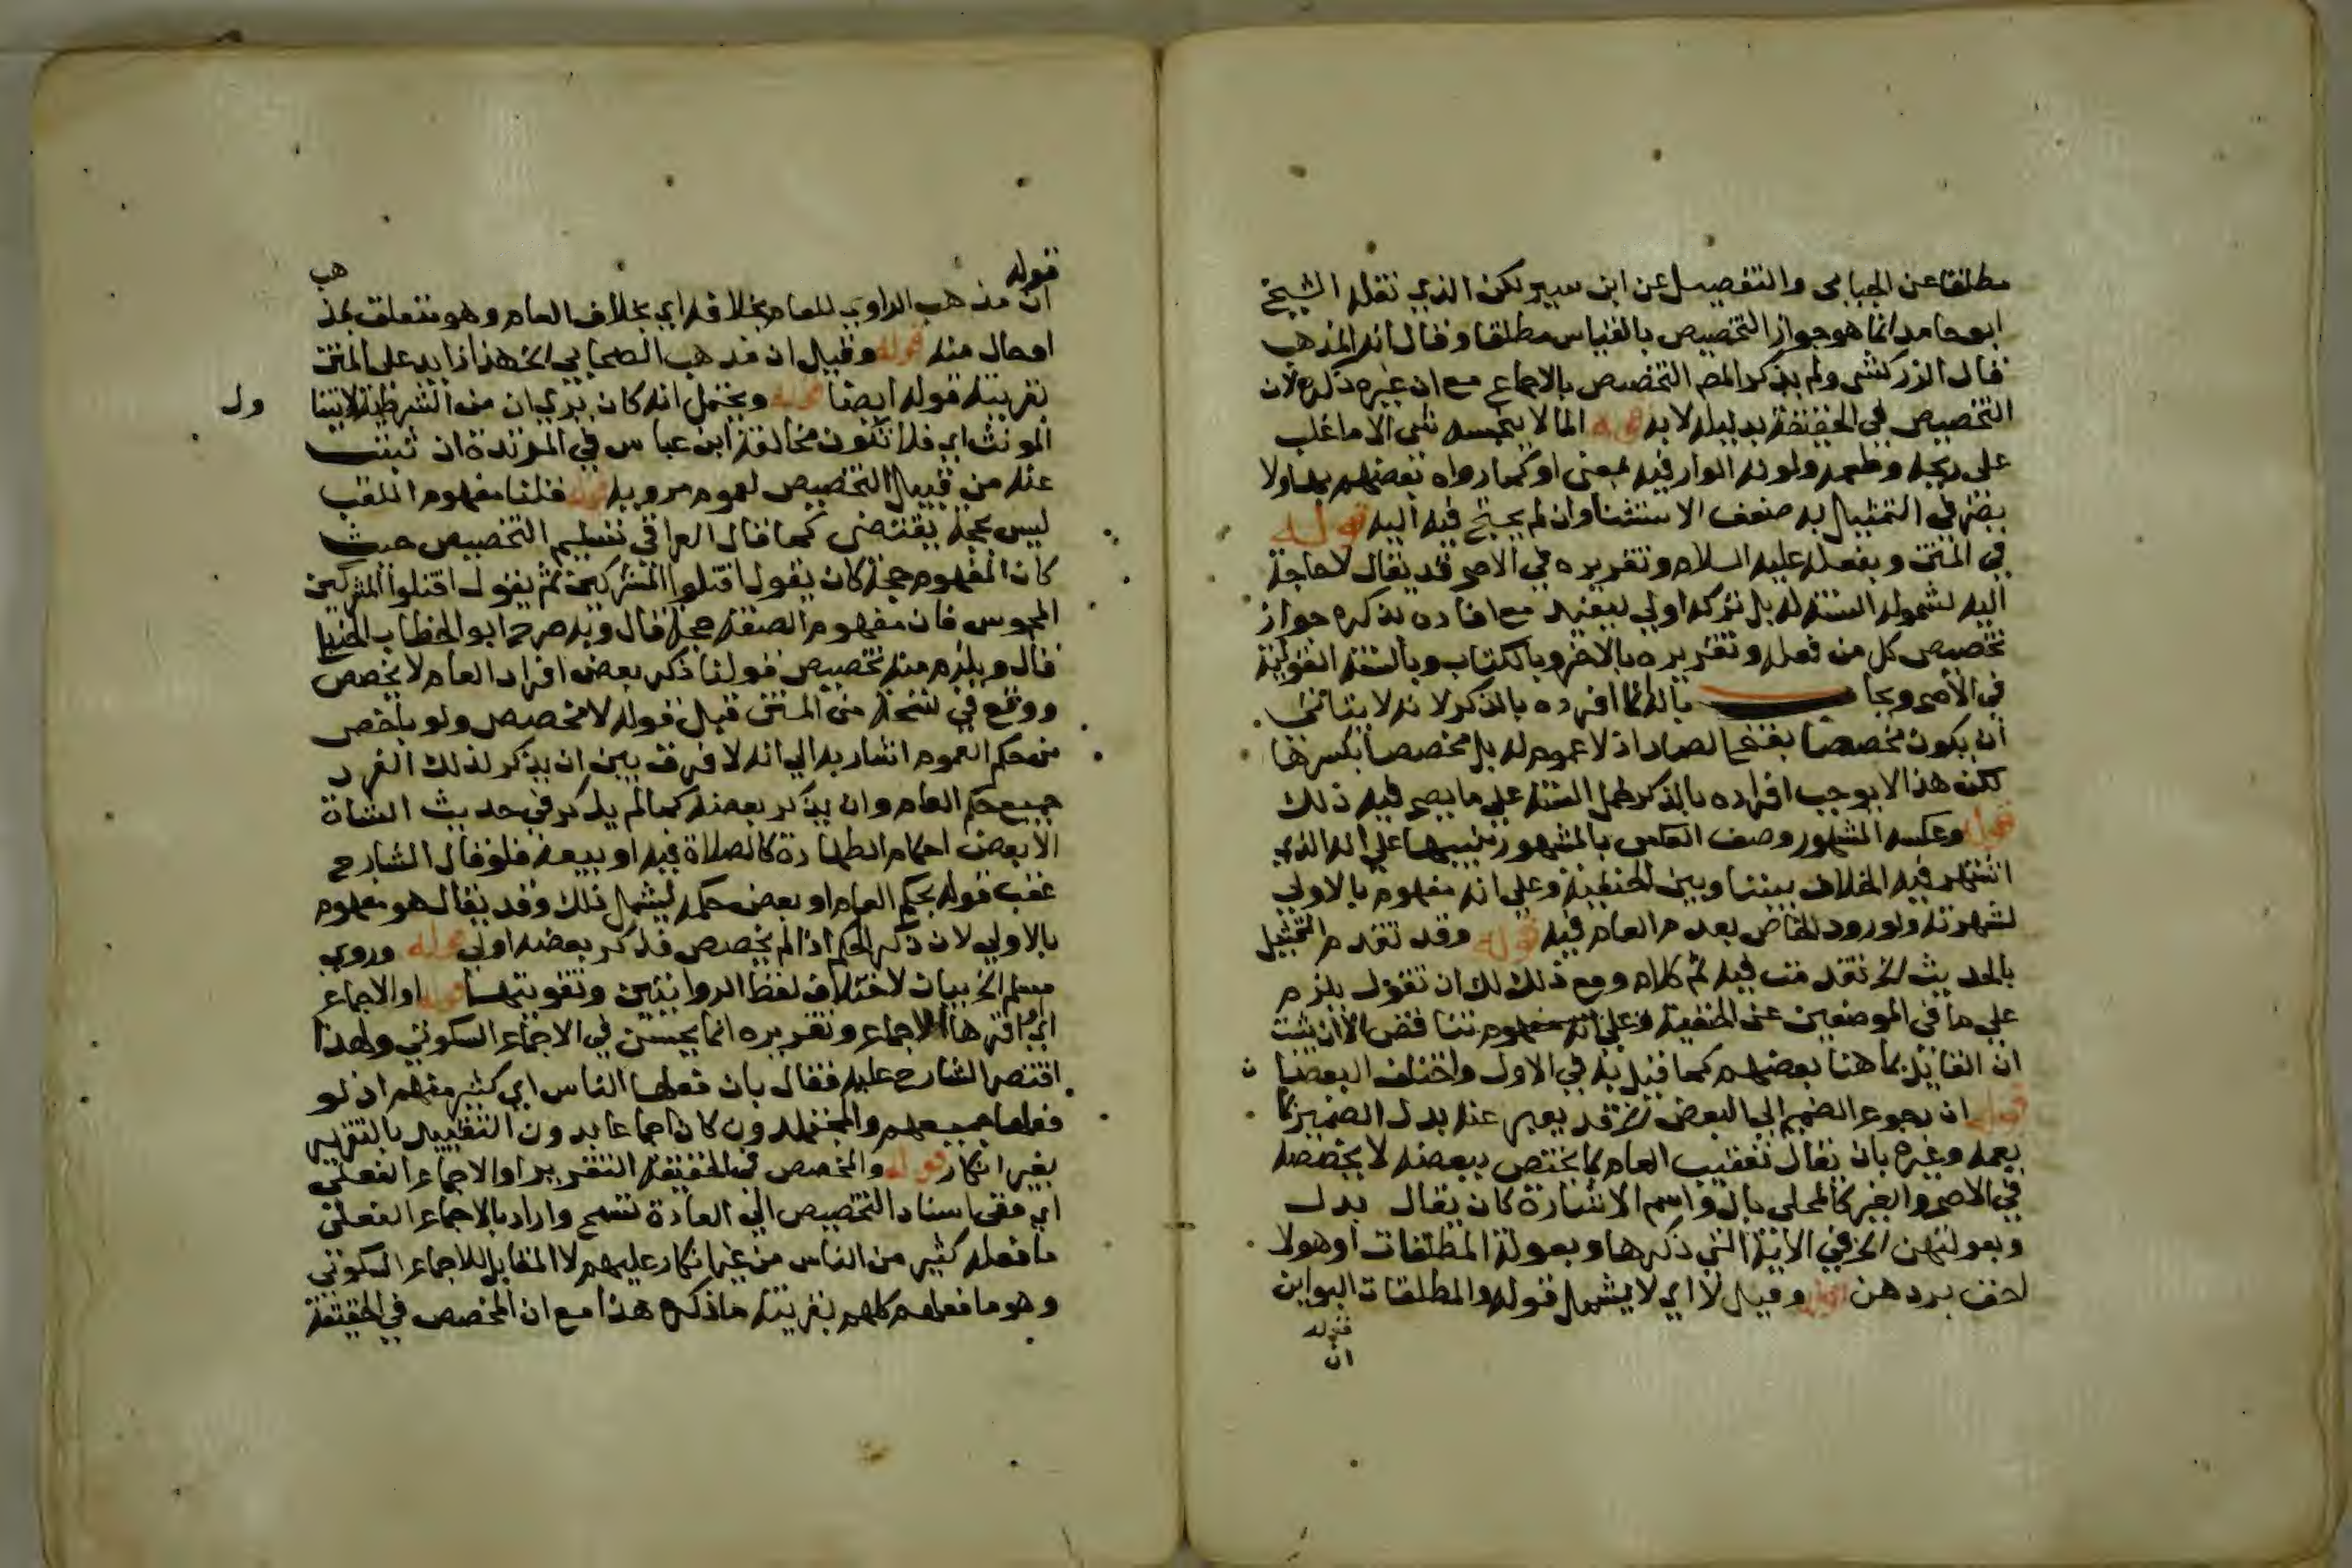 مطلقا عن الجبايى والتفصيل عن ابن سريج لكن الذي نقله الشيخ
ابو حامد انما هو جواز التخصيص بالقياس مطلقا وقال انه المذهب
قال الزركشى ولم يذكر المص التخصيص بالاجماع مع ان غيره ذكره لان
التخصيص في الحقيقة بدليله لا به قوله الما لا ينجسه شى الا ما غلب
على ريحه وطعمه ولونه الوار فيه بمعنى او كما رواه بعضهم بها ولا
يضر في التمثيل به ضعف الاستثنا وان لم يحتج فيه اليه قوله
في المتن وبفعله عليه السلام وتقريره في الاصح قد يقال لا حاجة
اليه لشموله السنة له بل تركه اولي ليفيد مع افاده بذكره جواز
تخصيص كل من فعله وتقريره بالاخر وبالكتاب وبالسنة القولية
في الاصح ويجا بانه انما افرده بالذكر لانه لا يتاتى
ان يكون مخصصا بفتح الصاد اذ لا عموم له بل مخصصا بكسرها
لكن هذا لا يوجب افراده بالذكر لحمل السنة على ما يصح فيه ذلك
قوله وعكسه المشهور وصف العكس بالمشهور تنبيها على انه الذي
اشتهر فيه الخلاف بيننا وبين الحنفية وعلى انه مفهوم بالاولي
لشهرته ولورود الخاص بعد م العام فيه قوله وقد تقدم التمثيل
بالحديث الخ تقدمت فيه ثم كلام ومع ذلك لك ان تقول يلزم
على ما في الموضعين عن الحنفية وعلى انه مفهوم تناقض الا ان يثبت
ان القايل بما هنا بعضهم كما قيل به في الاول واختلف البعضا ن
قوله ان رجوع الضمير الي البعض الخ قد يعبر عنه بدل الضمير بما
يعمه وغيره بان يقال تعقيب العام بما يختص ببعضه لا يخصصه
في الاصح والغير كالمحلى بال واسم الاشارة كان يقال بدل
وبعولتهن الخ في الاية التي ذكرها وبعولة المطلقات او هولا
احق بردهن قوله وقيل لا اي لا يشمل قوله والمطلقات البواين
قوله
ان
قوله
ان مذهب الراوي للعام بخلافه اي بخلاف العام وهو متعلق بمذ هب
او حال منه قوله وقيل ان مذهب الصحابي الخ هذا زايد على المتن
بقرينة قوله ايضا قوله ويحتمل انه كان يري ان من الشرطية لا يتنا ول
المونث اي فلا تكون مخالفة ابن عباس في المرتدة ان ثبتت
عنه من قبيل التخصيص لعموم مرويه قوله قلنا مفهوم اللقب
ليس بحجة يقتضى كما قال العراقي تسليم التخصيص حيث
كان المفهوم حجة كان يقول اقتلوا المشركين ثم يقول اقتلوا المشركين
المجوس فان مفهوم الصفة حجة قال وبه صرح ابو الخطاب الحنبلي
قال ويلزم منه تخصيص قولنا ذكر بعض افراد العام لا يخصص
ووقع في نسخة من المتن قبل قوله لا مخصص ولو باخص
من حكم العموم اشار به الي انه لا فرق بين ان يذكر لذلك الفرد
جميع حكم العام وان يذكر بعضه كما لم يذكر في حديث الشاة
الا بعض احكام الطهارة كالصلاة فيه او بيعه فلو قال الشارح
عقب قوله بحكم العام او بعض حكمه ليشمل ذلك وقد يقال هو مفهوم
بالاولي لان ذكر الحكم اذا لم يخصص فذكر بعضه اولي قوله وروي
مسلم الخ بيان لاختلاف لفظ الروايتين وتقويتهما قوله او الاجماع
اي اقرها الاجماع وتقريره انما يحسن في الاجماع السكوتي ولهذا
اقتصر الشارح عليه فقال بان فعلها الناس اي كثير منهم اذ لو
فعلها جميعهم والمجتهدون كان اجماعا بدون التقييد بالتقرير
بغير انكار قوله والمخصص في الحقيقة التقرير او الاجماع الفعلى
اي ففى اسناد التخصيص الى العادة تسمح واراد بالاجماع الفعلى
ما فعله كثير من الناس من غير انكار عليهم لا المقابل للاجماع السكوتي
وهو ما فعلهم كلهم بقرينة ما ذكره هذا مع ان المخصص في الحقيقة